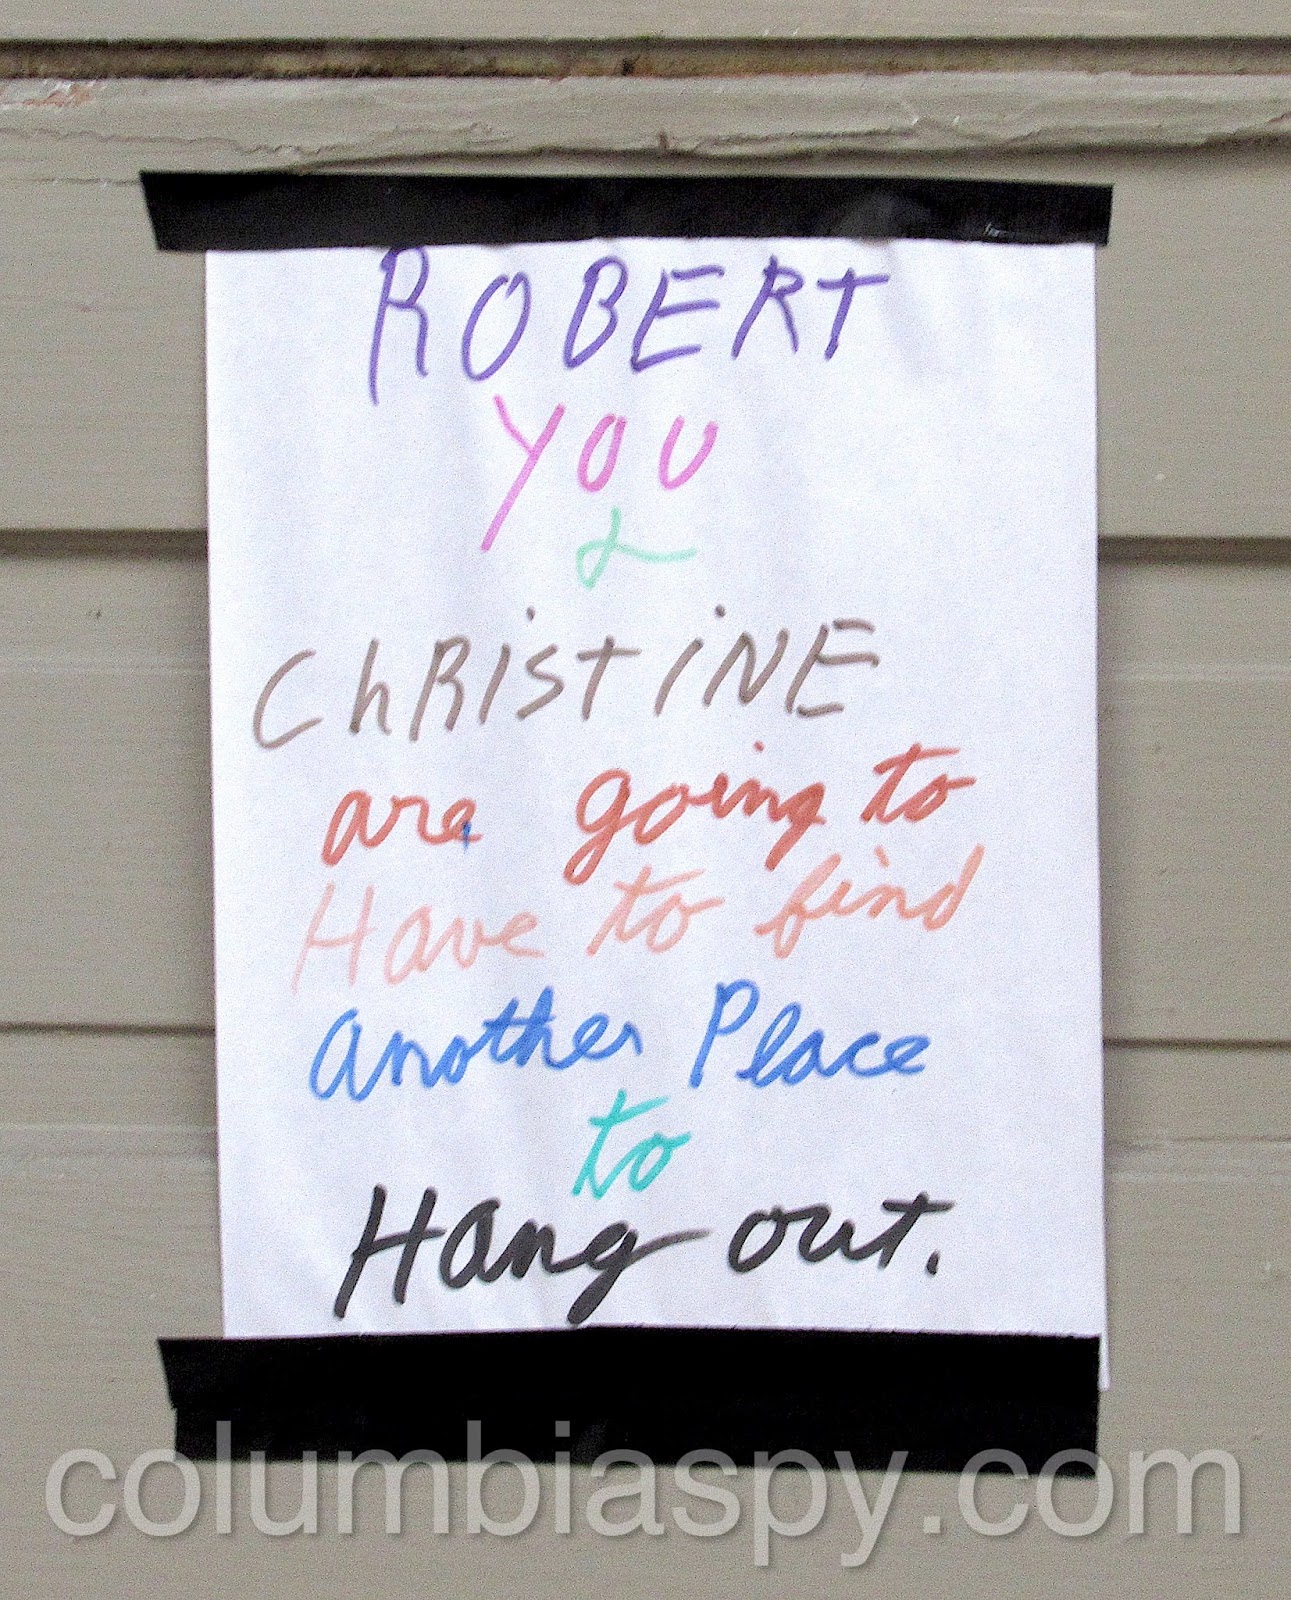 ROBERT
YOU
&
ChRiSTiNE
are going to
Have to find
another Place
to
Hang out.
columbiaspy.com